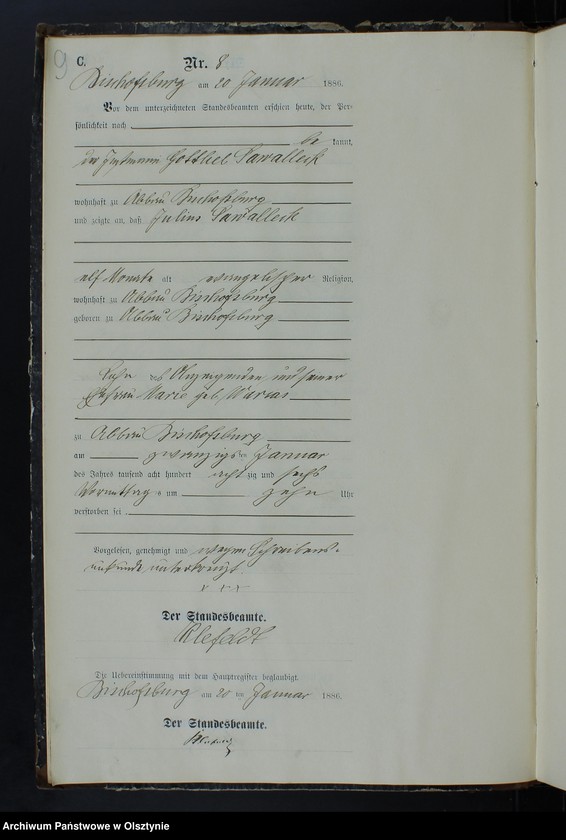 9
C.
Nr. 8
Bischofsburg am 20 Januar 1886.
Vor dem unterzeichneten Standesbeamten erschien heute, der Per-
sönlichkeit nach
be kannt,
der Instmann Gottlieb Sawalleck
wohnhaft zu Abbau Bischofsburg
und zeigte an, daß Julius Sawalleck
elf Monate alt evangelischer Religion,
wohnhaft zu Abbau Bischofsburg
geboren zu Abbau Bischofsburg
Sohn des Anzeigenden und seiner
Ehefrau Marie geb.
zu Abbau Bischofsburg
am zwanzigsten Januar
des Jahres tausend acht hundert acht zig und sechs
Vormittag s um zehn Uhr
verstorben sei
Vorgelesen, genehmigt und wegen Schreibens-
unkunde unterkreuzt.
x x x
Der Standesbeamte.
Die Uebereinstimmung mit dem Hauptregister beglaubigt.
Bischofsburg am 20 ten Januar 1886.
Der Standesbeamte.
Archiwum Państwowe w Olsztynie